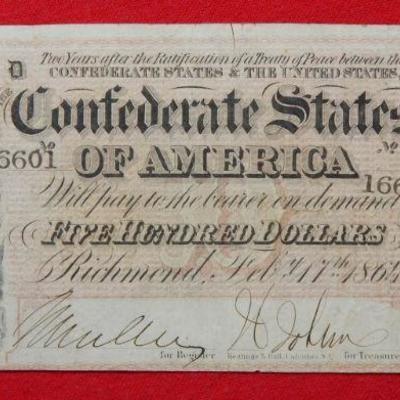 Two Years after the Ratification of a Treaty of Peace between the
D
CONFEDERATE STATES & THE UNITED STATES,
Confederate States
No
No
6601
OF AMERICA
166
Will pay to the bearer on demand
FIVE HUNDRED DOLLARS
Richmond, Feby. 17th, 1864
for Register
Keatinge & Ball, Columbia, S.C.
for Treasurer